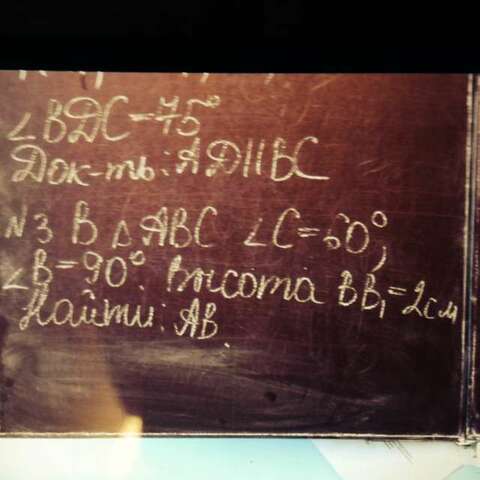 ∠BDC=75°
Док-ть: AD||BC
N3 В △ ABC ∠C=60°,
∠B=90°. Высота BB₁=2см
Найти: AB.